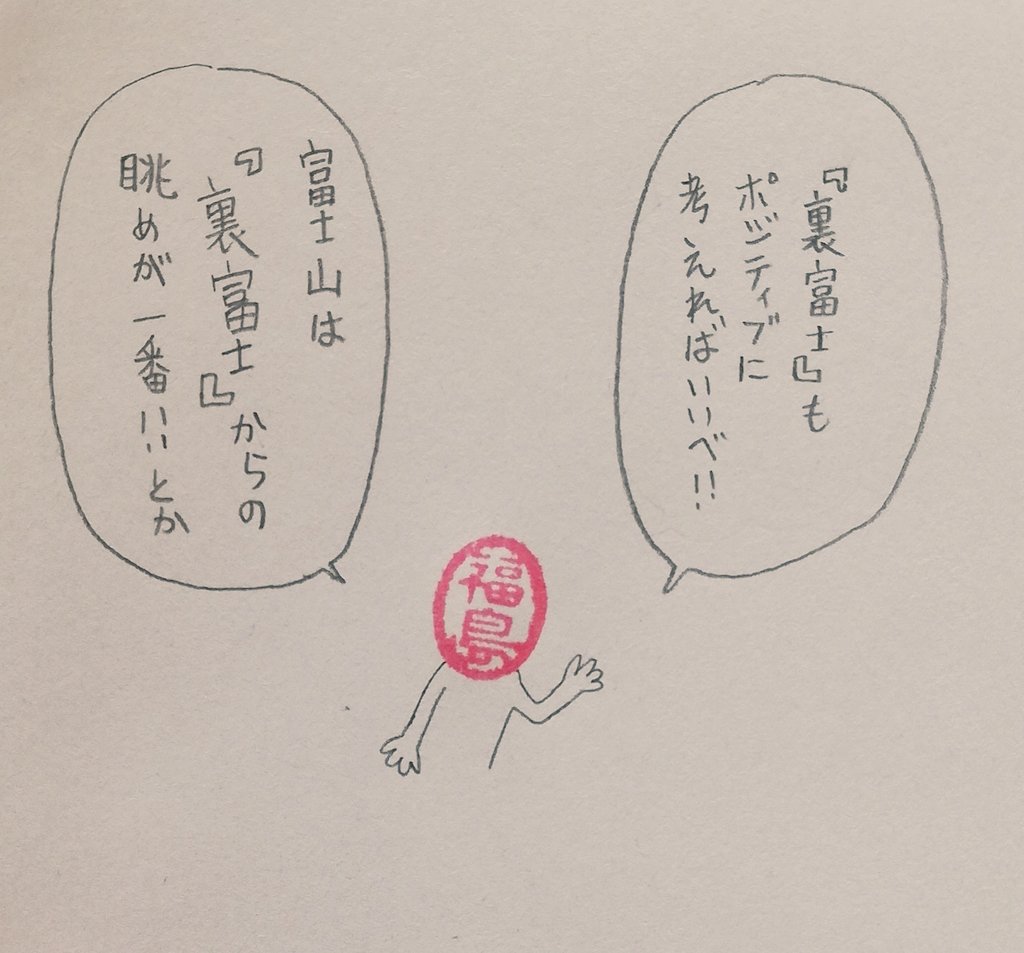 『裏富士』も
ポジティブに
考えればいいべ!!
富士山は
『裏富士』からの
眺めが一番いいとか
福島